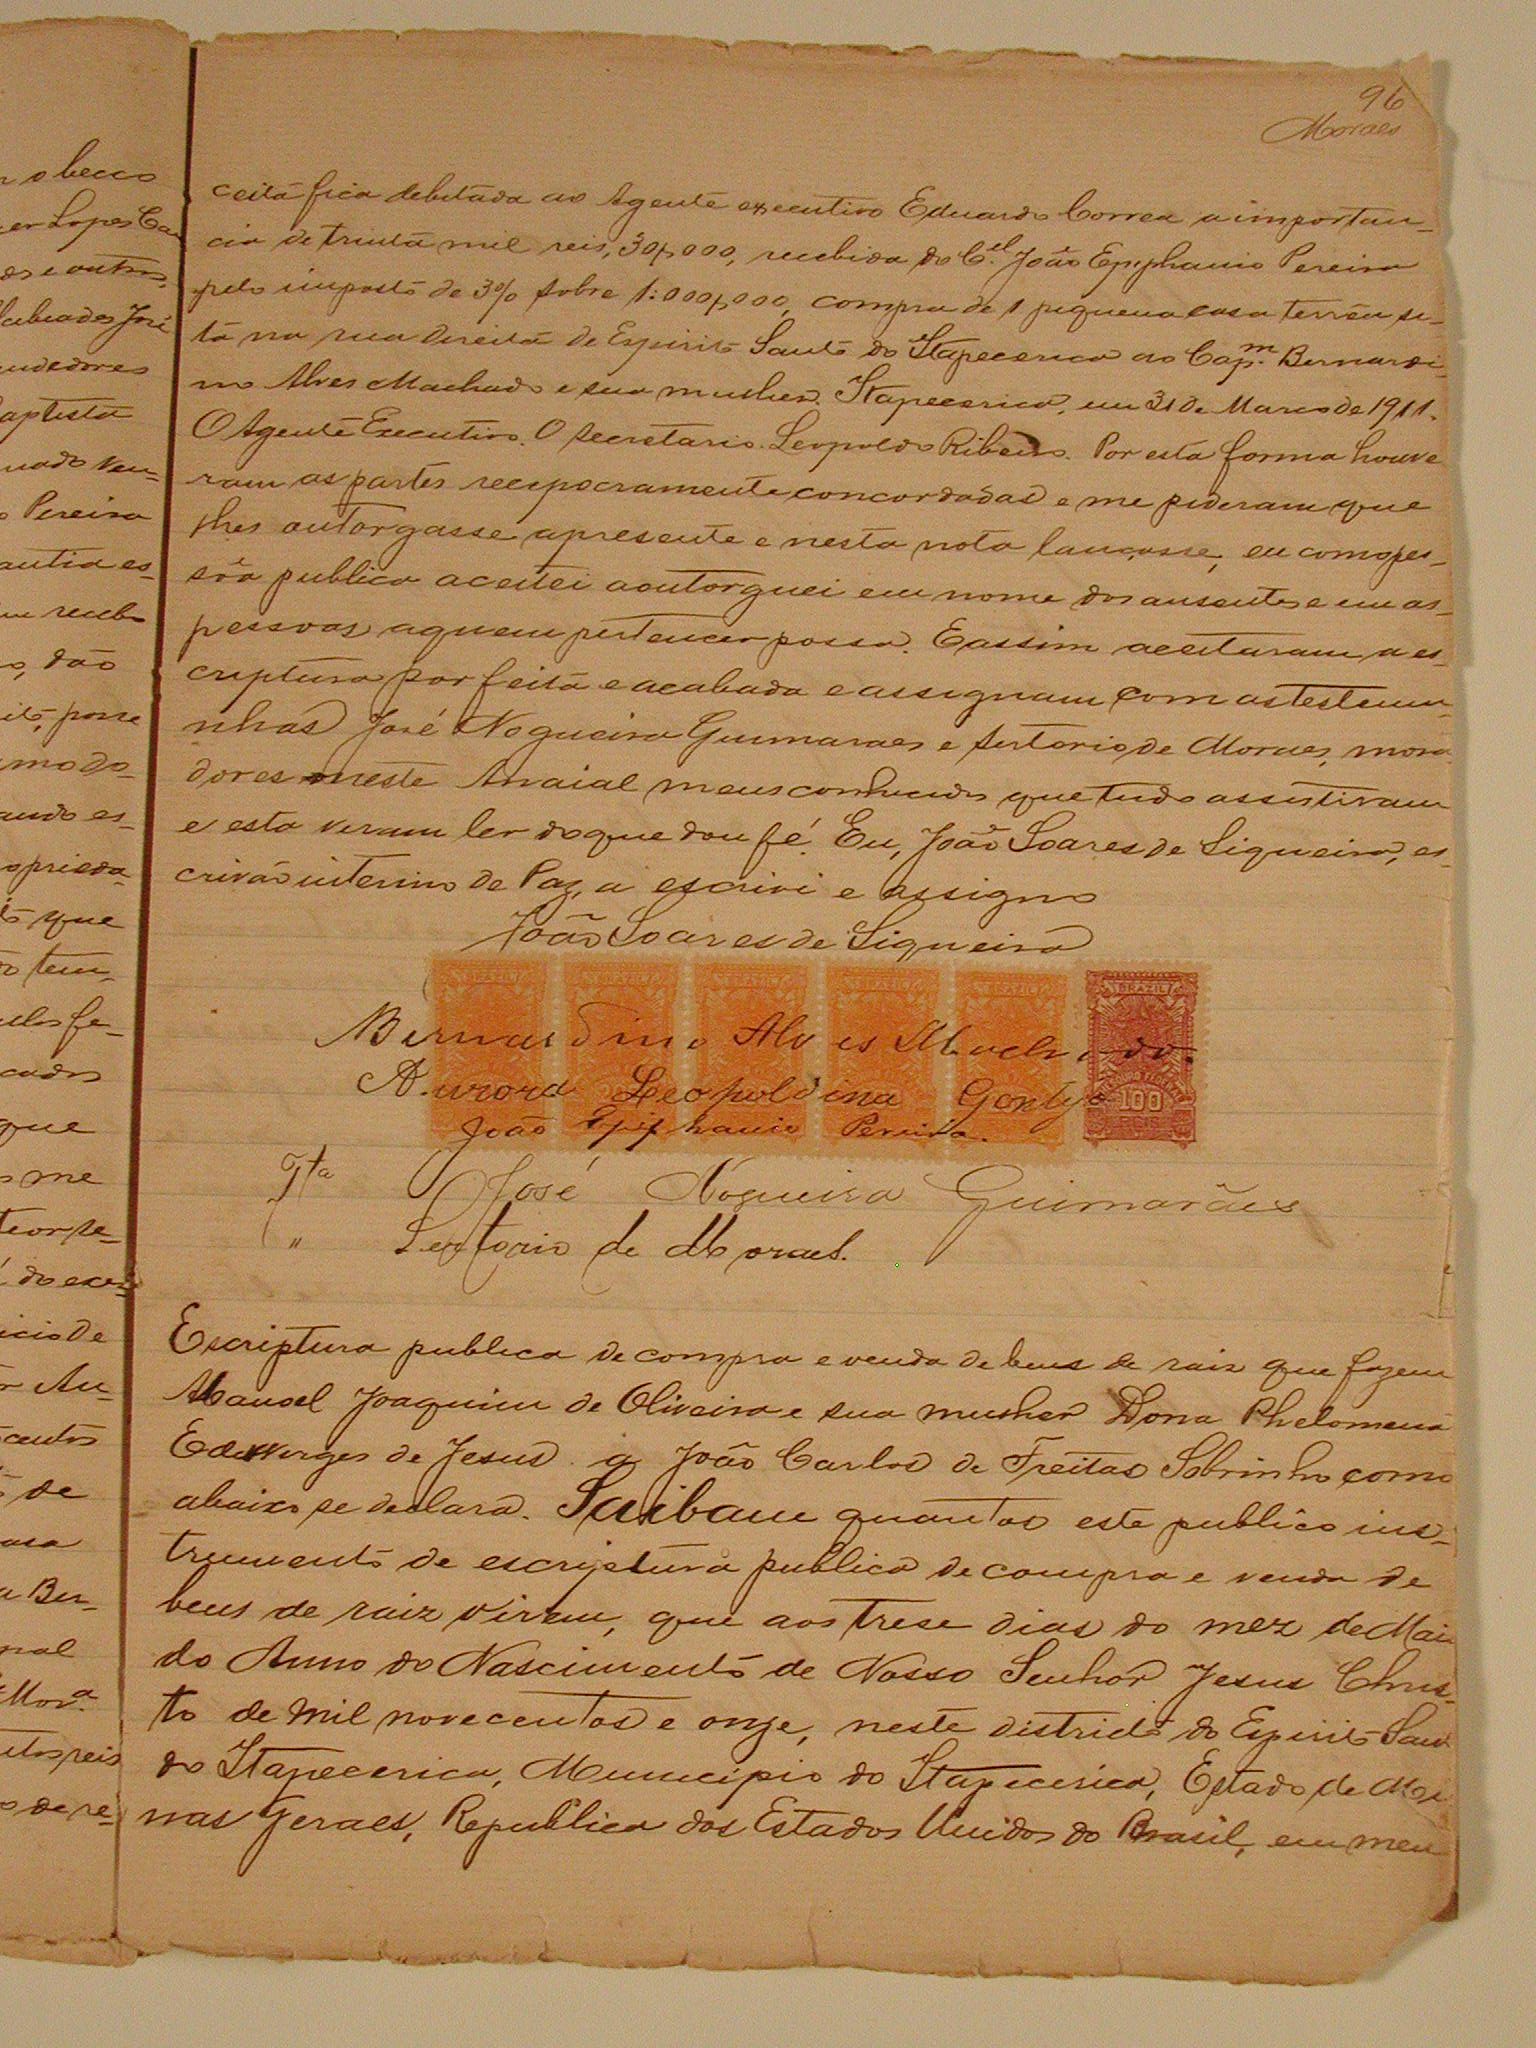 96
Moraes
n o becco
er Lopes Ca
os e outros,
José
endedores
aptista
nado ven-
o Pereira
antia es-
recebe
o, dão
posse
mo do-
ando es-
oprieda-
que
tem-
fe-
cados
que
s me
teor se-
do exer
icio de
Au-
centos
de
asa
a Ber-
Mor.ª
reis
o de re-
ceita fica debitada ao Agente executivo Eduardo Correa a importan-
cia de trinta mil reis, 30$000, recebida do C.el João Epiphanio Pereira
pelo imposto de 3% sobre 1:000$000, compra de 1 pequena casa terrea si-
ta na rua direita de Espirito Santo do Itapecerica ao Cap.m Bernardi-
no Alves Machado e sua mulher. Itapecerica, em 31 de Março de 1911.
O Agente Executivo. O Secretario. Leopoldo Ribeiro. Por esta forma houve
ram as partes recipocramente concordadas e me pideram que
lhes outorgasse a presente e nesta nota lançasse, eu como pes-
sôa publica aceitei a outorguei em nome dos ausentes e em as-
pessoas a quem pertencer possa. E assim aceitaram a es-
criptura por feita e acabada e assignam com as testemu-
nhas José Nogueira Guimaraes e Sertorio de Moraes, mora
dores neste Arraial meus conhecidos que tudo assistiram
e esta viram ler do que dou fé. Eu, João Soares de Siqueira, es-
crivão interino de Paz, a escrivi e assigno
João Soares de Siqueira
BRAZIL BRAZIL BRAZIL BRAZIL BRAZIL BRAZIL
Bernardino Alves Machado.
Aurora Leopoldina Gontyo
100
João Epiphanio Pereira.
Tta José Nogueira Guimarães
" Sertorio de Moraes.
Escriptura publica de compra e venda de bens de raiz que fazem
Manoel Joaquim de Oliveira e sua mulher Dona Phelomena
Edewirges de Jesus a João Carlos de Freitas Sobrinho como
abaixo se declara. Saibam quantos este publico ins-
trumento de escriptura publica de compra e venda de
bens de raiz virem, que aos trese dias do mez de Maio
do Anno do Nascimento de Nosso Senhor Jesus Chris-
to de mil novecentos e onze, neste districto do Espirito Sant
do Itapecerica, Municipio do Itapecerica, Estado de Mi
nas Geraes, Republica dos Estados Unidos do Brasil, em meu